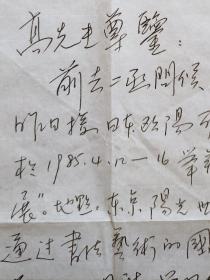 高先生尊鑒：
前去二函問候
昨日接日本欧陽可
於1985.4.12-16举
展"。地點：东京，陽光世
通过書法藝術的國